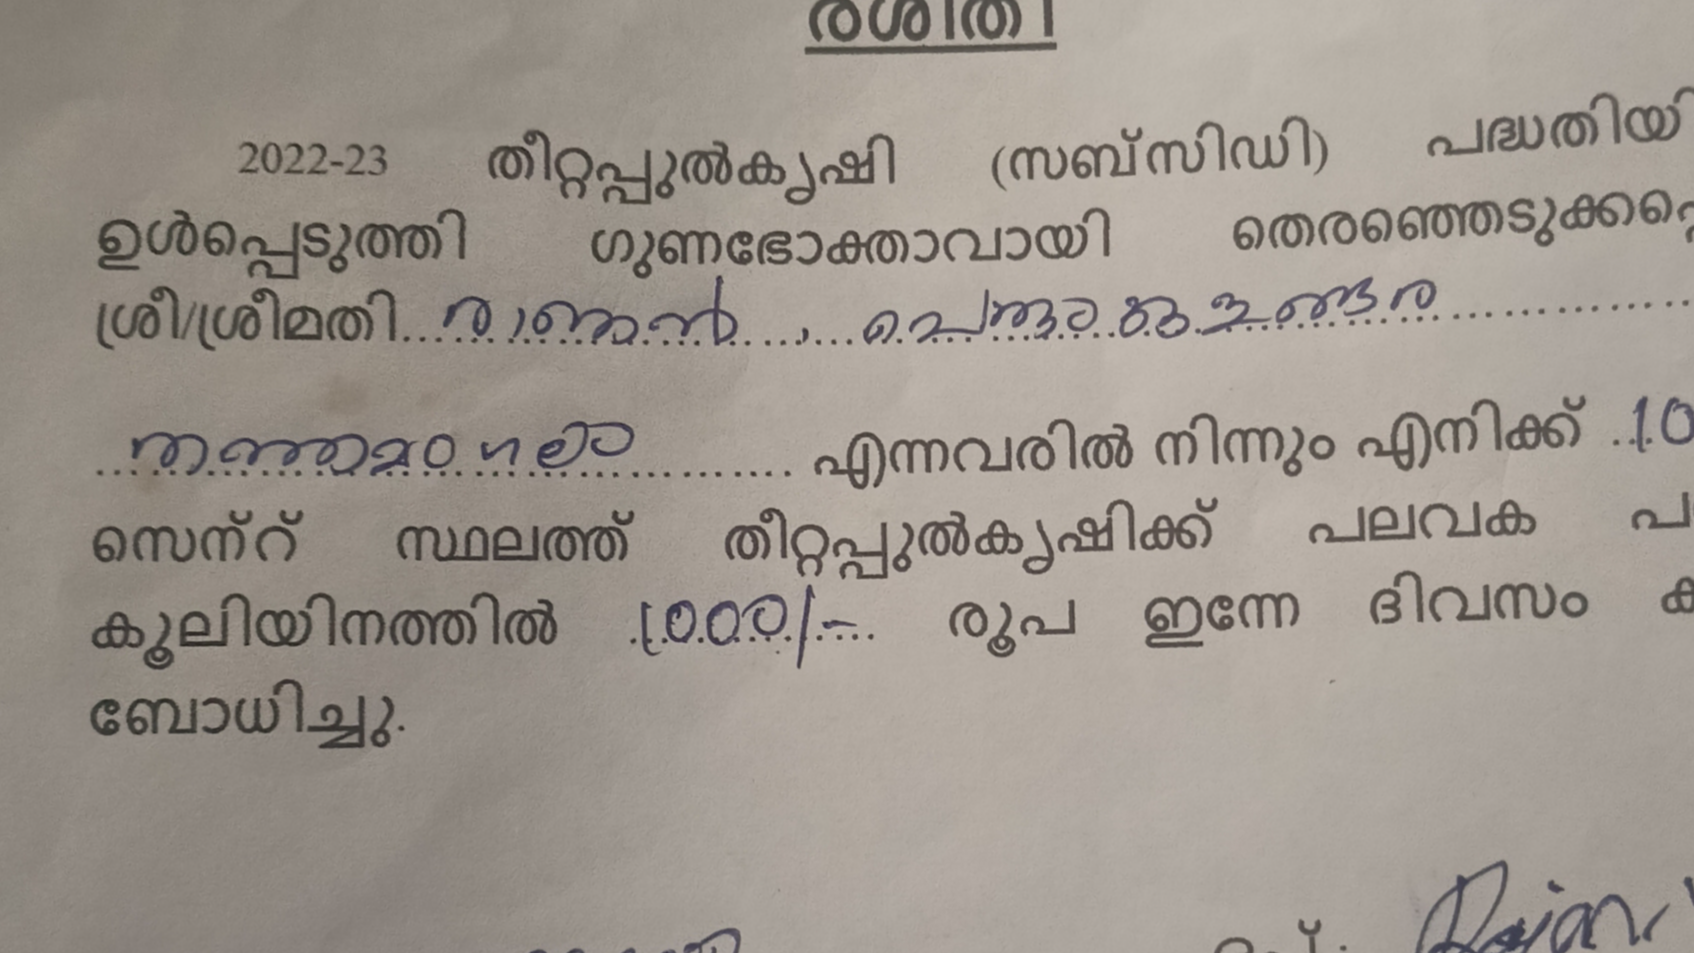 രശീതി
2022-23 തീറ്റപ്പുൽകൃഷി (സബ്സിഡി) പദ്ധതിയി
ഉൾപ്പെടുത്തി ഗുണഭോക്താവായി തെരഞ്ഞെടുക്കപ്പെ
ശ്രീ/ശ്രീമതി രാജൻ,
തത്തമംഗലം എന്നവരിൽ നിന്നും എനിക്ക് 10
സെന്റ് സ്ഥലത്ത് തീറ്റപ്പുൽകൃഷിക്ക് പലവക പ
കൂലിയിനത്തിൽ 1000/- രൂപ ഇന്നേ ദിവസം ക
ബോധിച്ചു.